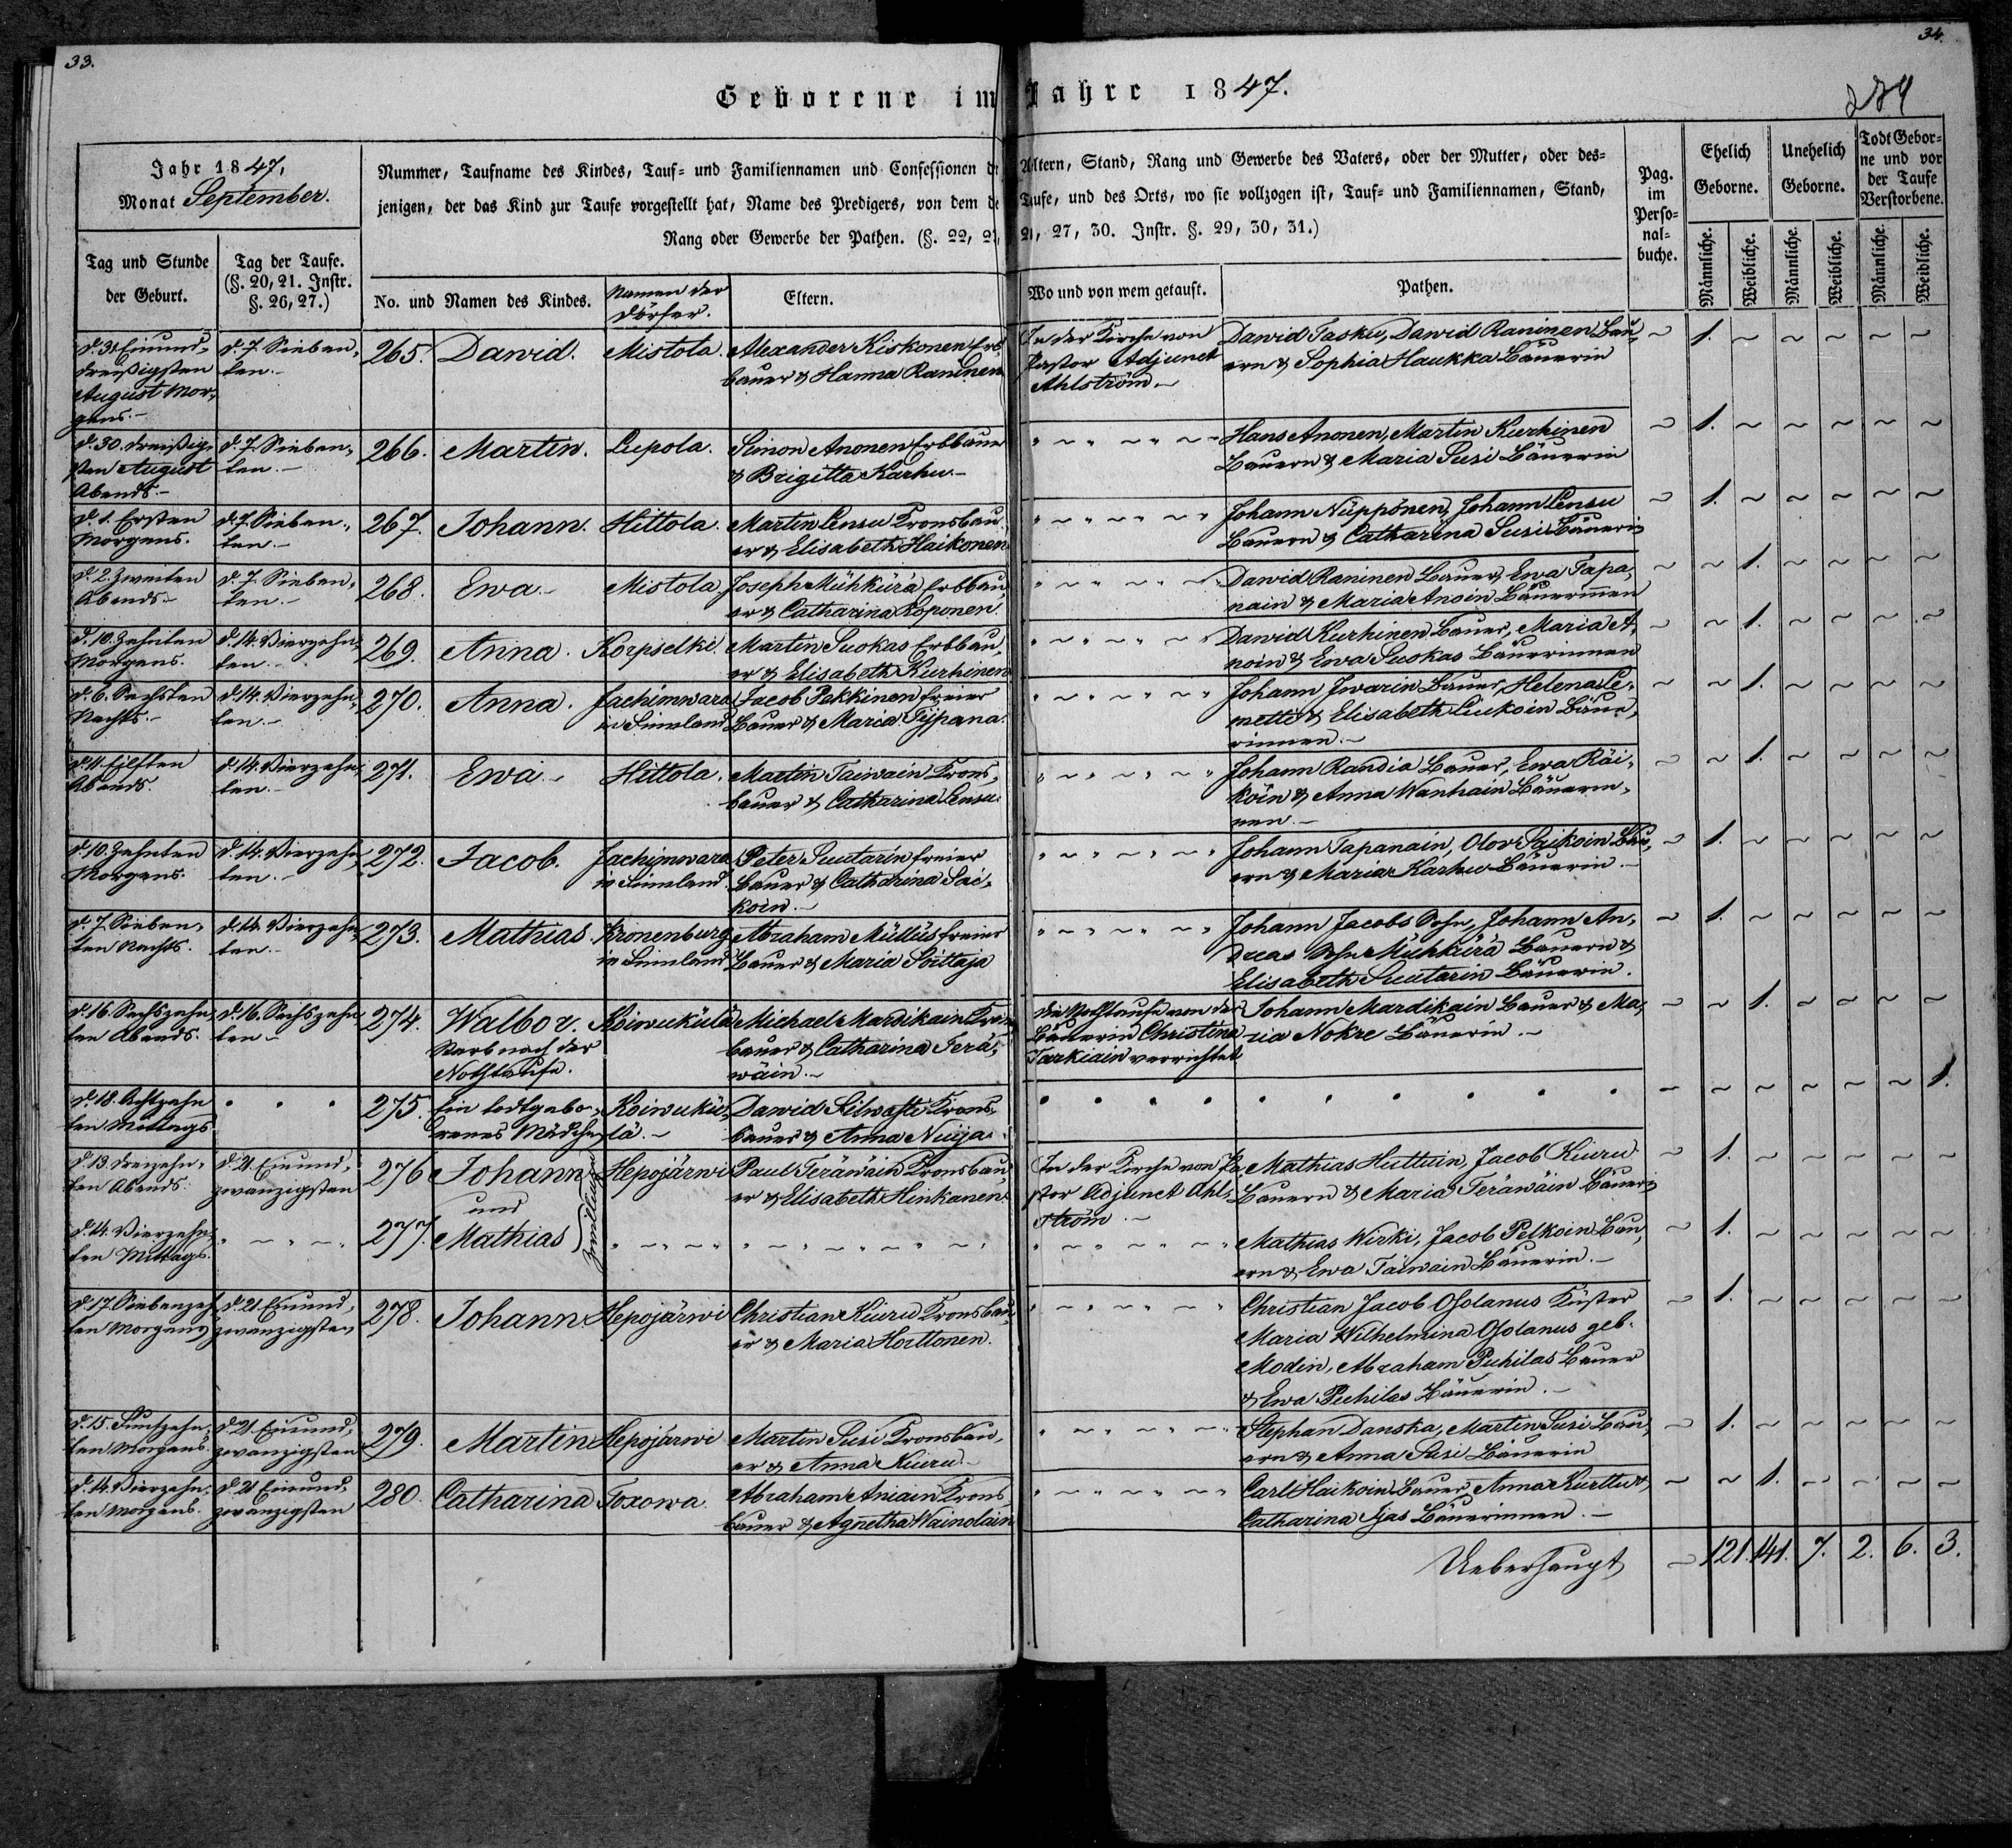 33.
34.
Geborene im Jahre 1847.
284
Jahr 1847,
Monat September.
Nummer, Taufname des Kindes, Tauf- und Familiennamen und Confessionen der Aeltern, Stand, Rang und Gewerbe des Vaters, oder der Mutter, oder des-
jenigen, der das Kind zur Taufe vorgestellt hat, Name des Predigers, von dem die Taufe, und des Orts, wo sie vollzogen ist, Tauf- und Familiennamen, Stand,
Rang oder Gewerbe der Pathen. (§. 22, 27, 30. Instr. §. 29, 30, 31.)
Pag.
im
Perso-
nal-
buche.
Ehelich
Geborne.
Unehelich
Geborne.
Todt Gebor-
ne und vor
der Taufe
Verstorbene.
Tag und Stunde
der Geburt.
Tag der Taufe.
(§. 20, 21. Instr.
§. 26, 27.)
No. und Namen des Kindes.
Namen der
Dörfer.
Eltern.
Wo und von wem getauft.
Pathen.
Männliche. Weibliche. Männliche. Weibliche. Männliche. Weibliche.
d. 31 Einund-
dreißigsten
August Mor-
gens.
d. 7. Sieben-
ten.
265. Dawid. Mistola.
Alexander Kiskonen Erb-
bauer & Hanna Raninen
In der Kirche von
Pastor Adjunct
Ahlström
Dawid Tasku, Dawid Raninen Bau-
ern & Sophia Haukka Bäuerin
1.
d. 30. dreißig-
sten August
Abends.
d. 7. Sieben-
ten.
266. Martin. Lupola.
Simon Anonen Erbbauer
& Brigitta Karhu
Hans Anonen, Martin Kurhinen
Bauern & Maria Susi Bäuerin
1.
d. 1. Ersten
Morgens.
d. 7. Sieben-
ten.
267. Johann. Hittola.
Martin Lensu Kronsbau-
er & Elisabeth Haikonen
Johann Nüppönen, Johann Lensu
Bauern & Catharina Susi Bäuerin
1.
d. 2. Zweiten
Abends.
d. 7. Sieben-
ten.
268. Ewa. Mistola
Joseph Mühkürä Erbbau-
er & Catharina Koponen.
Dawid Raninen Bauer, Ewa Tapa-
nain & Maria Anoin Bäuerinnen
1.
d. 10. Zehnten
Morgens.
d. 14. Vierzehn-
ten.
269. Anna. Korpselki.
Martin Suokas Erbbau-
er & Elisabeth Kurhinen
Dawid Kurhinen Bauer, Maria A-
noin & Ewa Suokas Bäuerinnen
1.
d. 6. Sechsten
Nachts.
d. 14. Vierzehn-
ten.
270. Anna.
Jachimwara
in Finnland
Jacob Pekkinen freier
Bauer & Maria Sÿpana.
Johann Iwarin Bauer, Helena Le-
metti & Elisabeth Liukoin Bäue-
rinnen.
1.
d. 11. Eilften
Abends.
d. 14. Vierzehn-
ten.
271. Ewa. Hittola.
Martin Taiwain Krons-
bauer & Catharina Lensu
Johann Randia Bauer, Ewa Räi-
köin & Anna Wanhain Bäuerin-
nen.
1.
d. 10. Zehnten
Morgens.
d. 14. Vierzehn-
ten.
272. Jacob.
Jachimwara
in Finnland.
Peter Suutarin freier
Bauer & Catharina Sai-
koin.
Johann Tapanain, Olov Paikoin Bau-
ern & Maria Karhu Bäuerin.
1.
d. 7. Sieben-
ten Nachts.
d. 14. Vierzehn-
ten
273. Mathias.
Kronenburg
in Finnland
Abraham Müllüs freier
Bauer & Maria Soittaja
Johann Jacobs Sohn, Johann An-
dreas Sohn Mühkürä Bauern &
Elisabeth Suutarin Bäuerin.
1.
d. 16. Sechszehn-
ten Abends.
d. 16. Sechszehn-
ten
274. Walbor.
Starb nach der
Nothtaufe.
Koiwukülä
Michael Mardikain Krons-
bauer & Catharina Terä-
wäin.
Die Nothtaufe von der
Bäuerin Christina
Tarkiain verrichtet
Johann Mardikain Bauer & Ma-
ria Nokre Bäuerin.
1.
d. 18. Achtzehn
ten Mittags
275. Ein todtgebo-
renes Mädchen
Koiwukü-
lä.
Dawid Silwasti Krons-
bauer & Anna Nuija.
1.
d. 13. dreizehn-
ten Abends.
d. 21. Einund-
zwanzigsten
276 Johann
und
Zwillinge
Hepojärwi
Paul Teräwäin Kronsbau-
er & Elisabeth Hinkanen.
In der Kirche von Pa-
stor Adjunct Ahl-
ström.
Mathias Huttuin, Jacob Kiuru
Bauern & Maria Teräwäin Bäuerin
1.
d. 14. Vierzehn-
ten Mittags.
277. Mathias
Mathias Wirki, Jacob Pelkoin Bau-
ern & Ewa Taiwain Bäuerin.
1.
d. 17. Siebenzehn
ten Morgens
d. 21. Einund-
zwanzigsten
278. Johann. Hepojärwi
Christian Kiuru Kronsbau-
er & Maria Horttonen.
Christian Jacob Osolanus Küster
Maria Wilhelmina Osolanus geb.
Modin, Abraham Puhilas Bauer
& Ewa Puhilas Bäuerin.
1.
d. 15. Funfzehn-
ten Morgens.
d. 21. Einund-
zwanzigsten
279. Martin Hepojärwi
Martin Susi Kronsbau-
er & Anna Kiuru.
Stephan Danska, Martin Susi Bau-
ern & Anna Susi Bäuerin
1.
d. 14. Vierzehn-
ten Morgens.
d. 21 Einund-
zwanzigsten
280. Catharina Toxowa.
Abraham Aniain Krons-
bauer & Agnetha Wainolain
Carl Haikoin Bauer, Anna Kurttu &
Catharina Ijas Bäuerinnen.
1.
Ueberhaupt 121. 141. 7. 2. 6. 3.